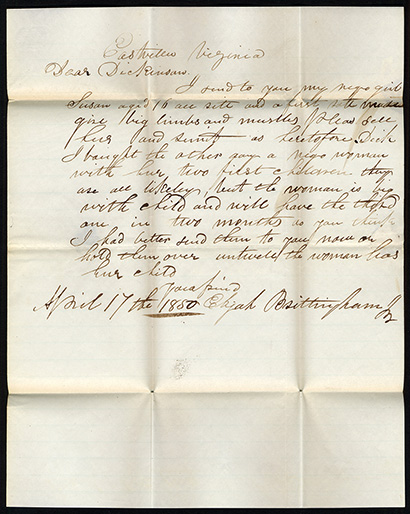 Eastville Virginia
Dear Dickinson
I send to you my negro girl
Susan aged 16 all sete and a first rate
give big limbs and mustles please sell
hur and as heretofore Dick
I bought the other day a negro woman
with hur two first children they
are all likeley, but the woman is big
with child and will have the third
one in two months do you think
I had better send them to you now or
hold them over untwell the woman has
hur child
Your frind
April 17 the 1850 Elijah Brittingham